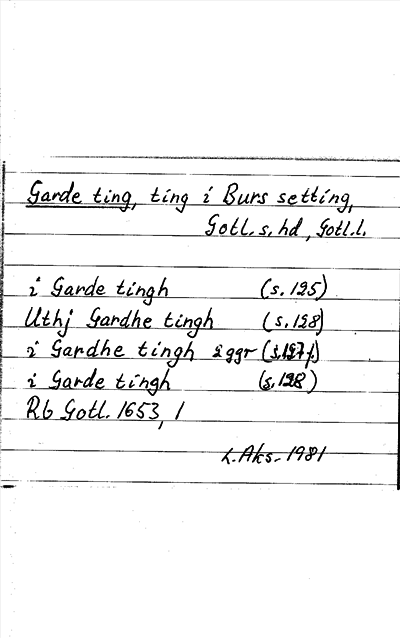 Garde ting, ting i Burs setting,
Gotl. s. hd, Gotl. l.
i Garde tingh (s. 125)
Uthj Gardhe tingh (s. 128)
i Gardhe tingh 2 ggr (s. 127 f.)
i Garde tingh (s. 128)
Rb Gotl. 1653, 1
L. Aks. 1981